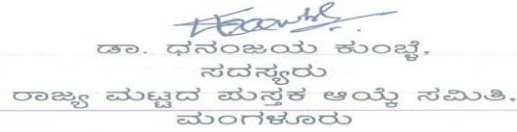 ಡಾ. ಧನಂಜಯ ಕುಂಬ್ಳೆ,
ಸದಸ್ಯರು
ರಾಜ್ಯ ಮಟ್ಟದ ಪುಸ್ತಕ ಆಯ್ಕೆ ಸಮಿತಿ,
ಮಂಗಳೂರು